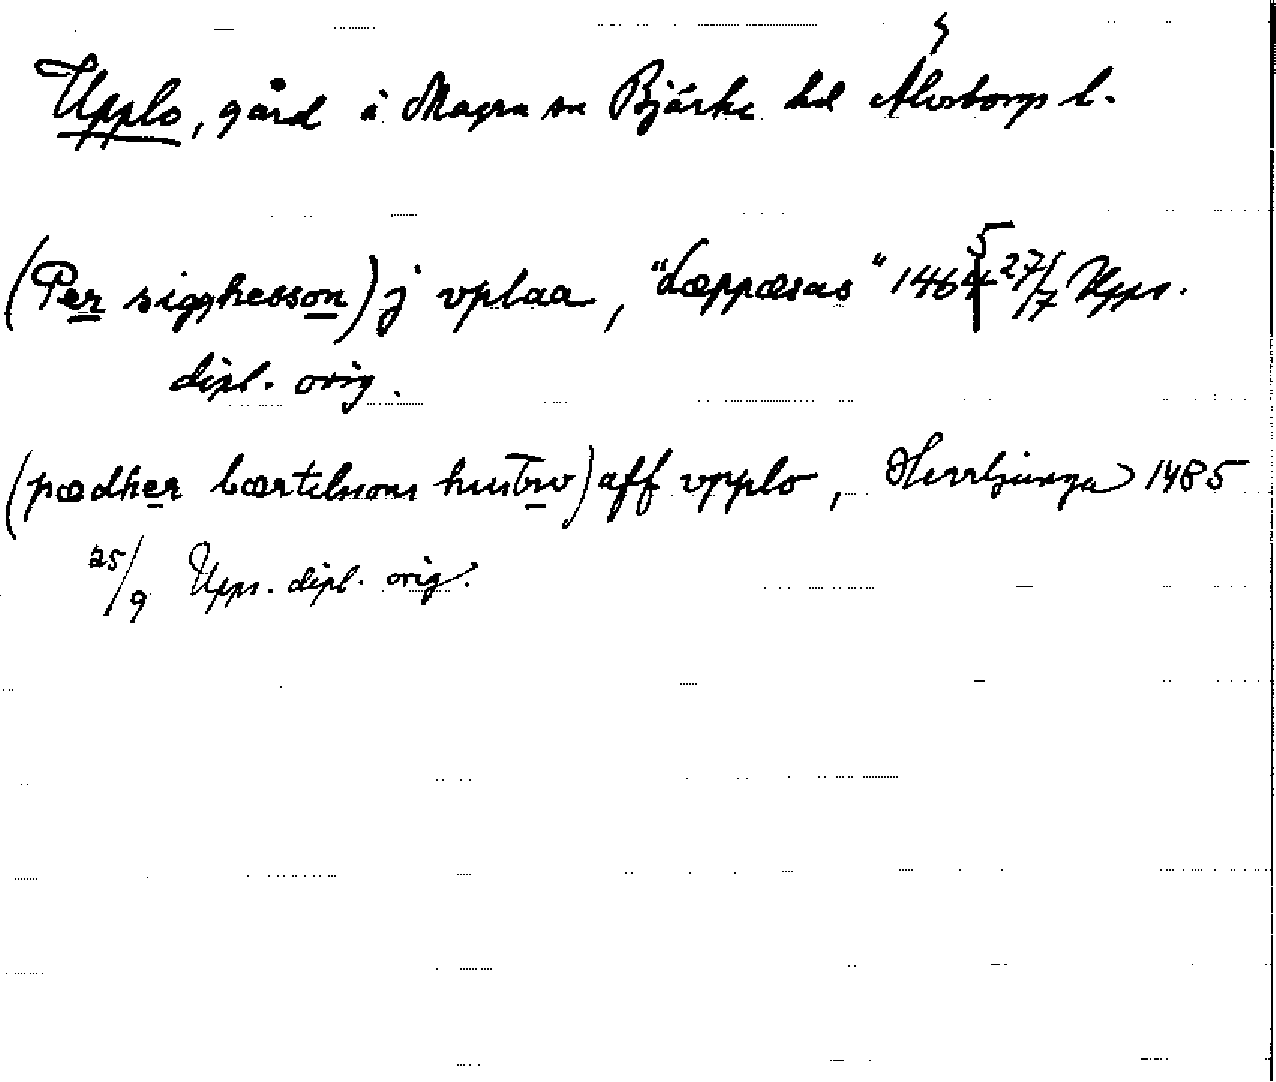 Upplo, gård i Magra sn Bjärke hd Älvsborgs l.
(Per sigghesson) j vplaa, "Læppæsas" 1465 27/7 Upps.
dipl. orig.
(pædher bærtilsons hustrv) aff vpplo, Herrljunga 1485
25/9 Upps. dipl. orig.